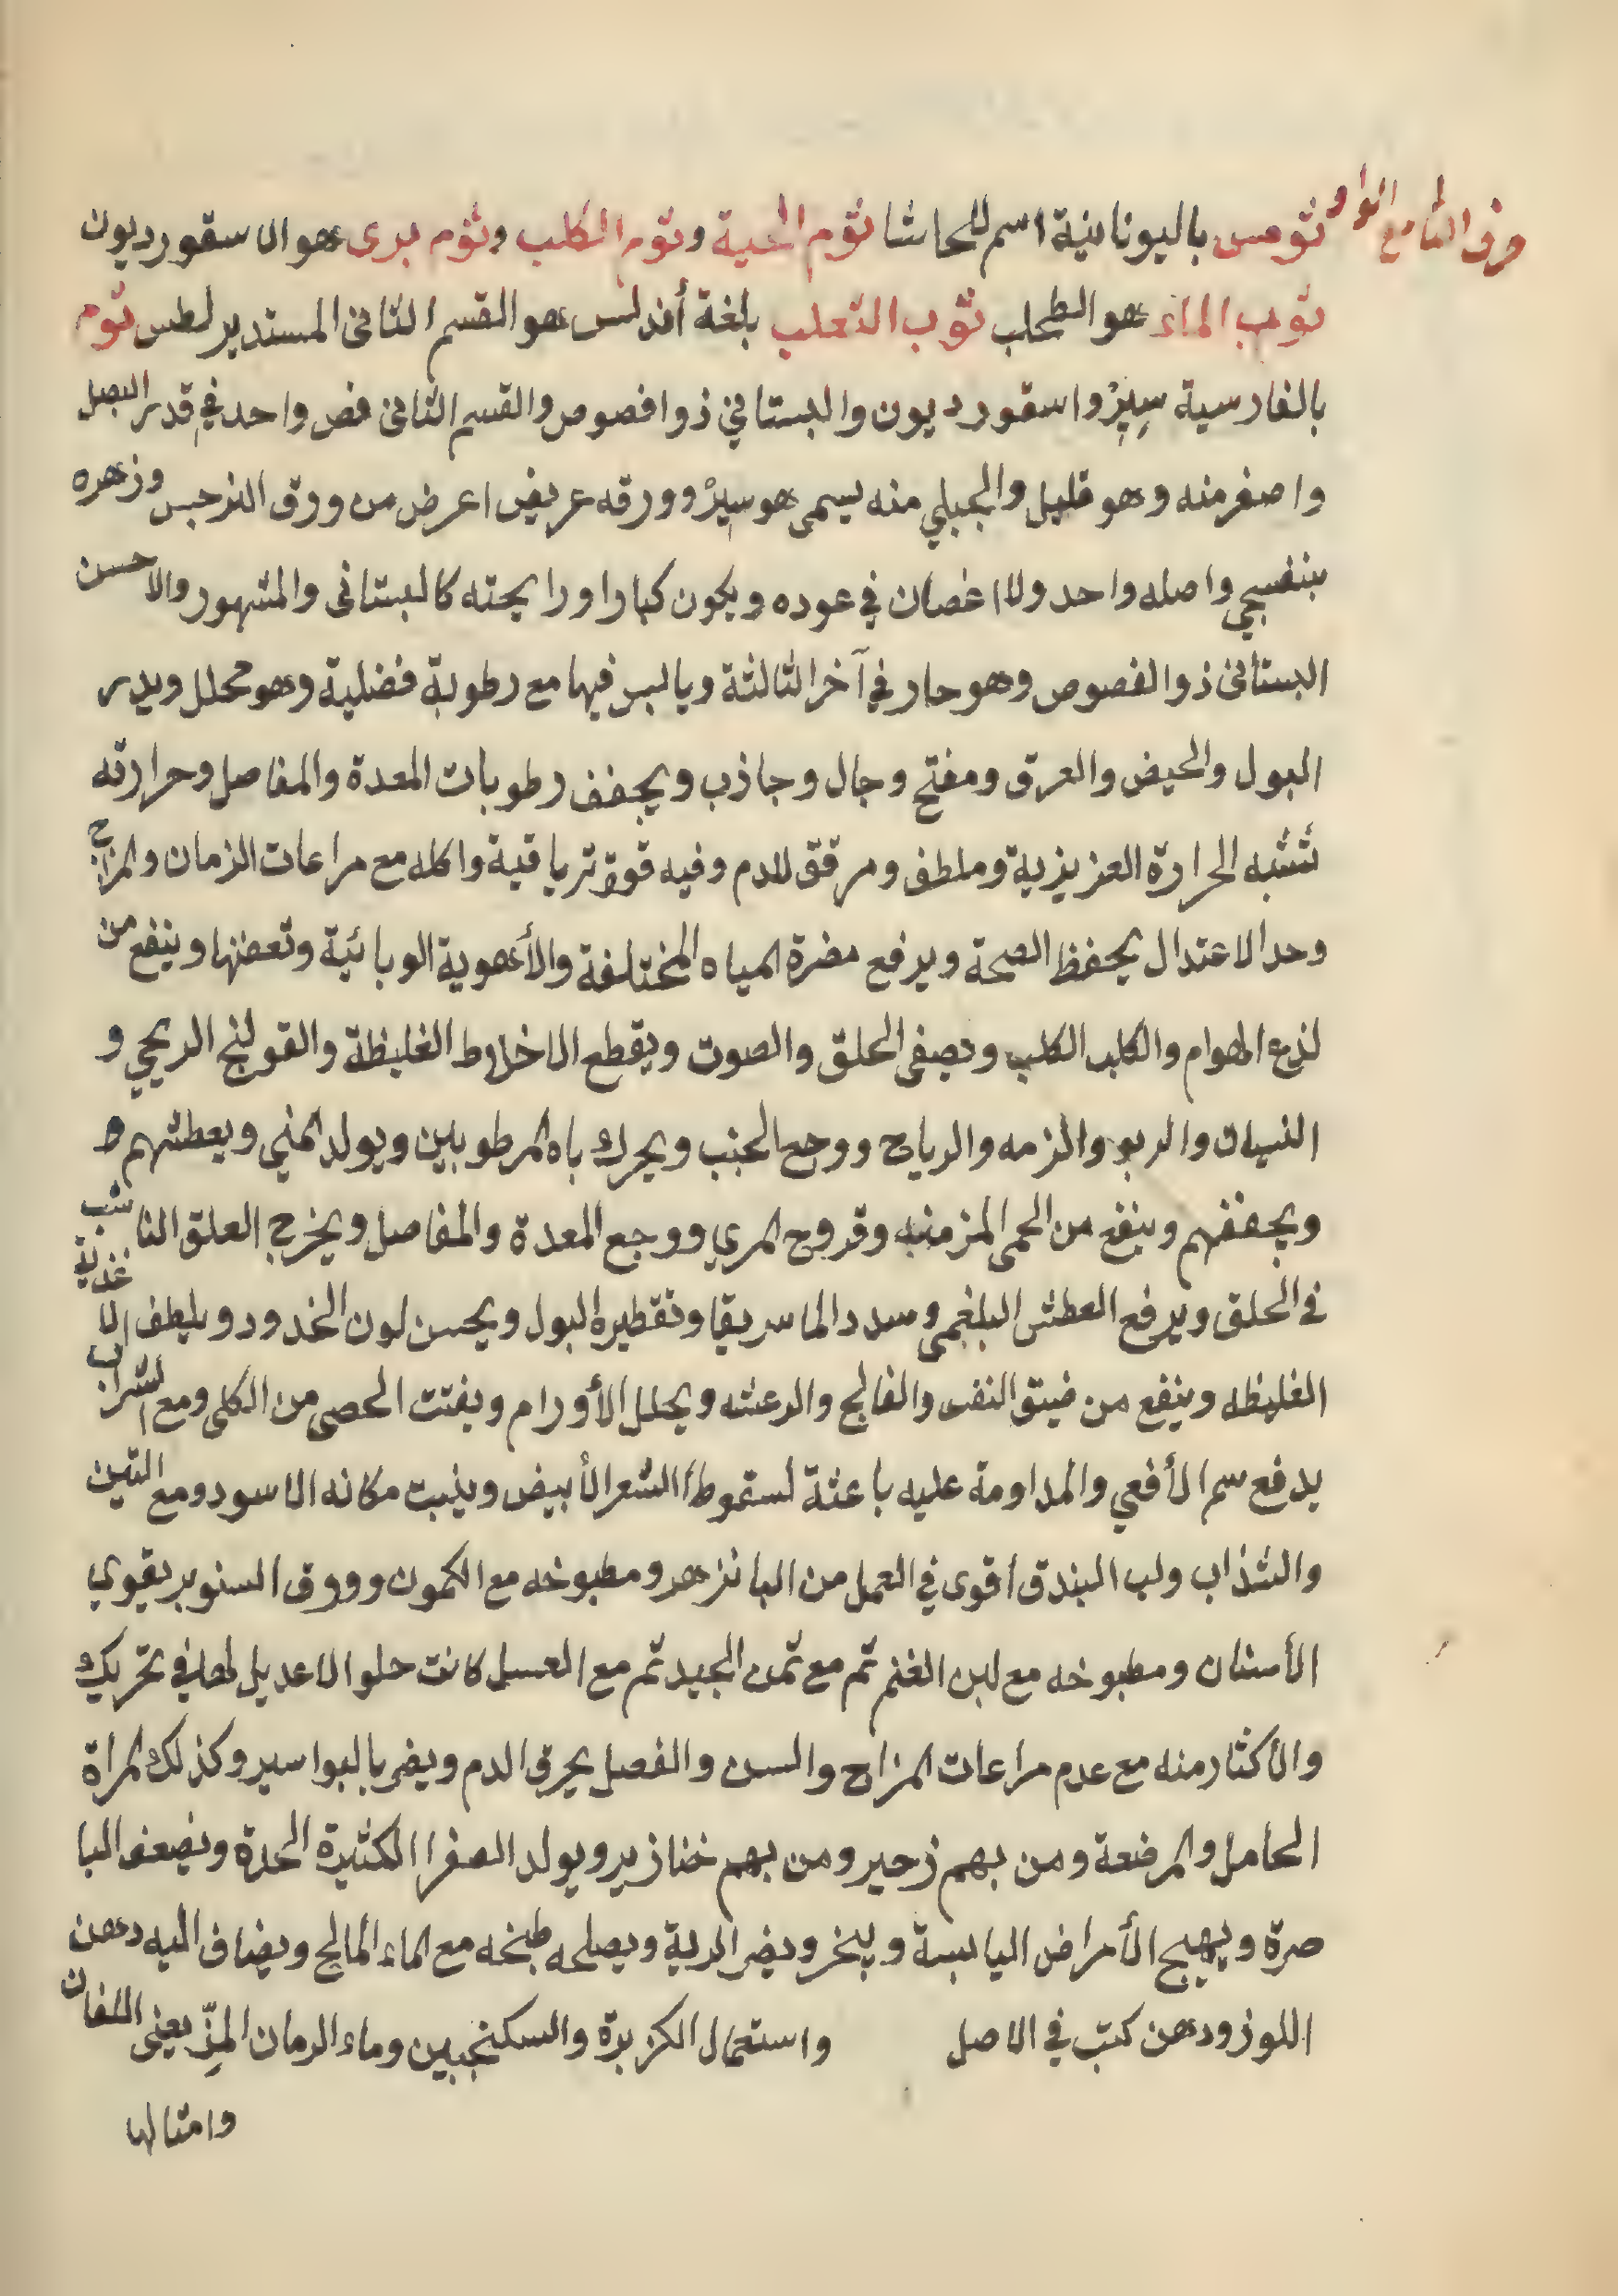 حرف الثا مع الواو
ثومس باليونانية اسم للحاشا ثوم الحية وثوم الكلب وثوم برى هو الاسقورديون
ثوب الماء هو الطحلب ثوب الثعلب بلغة أندلس هو القسم الثانى المستدير لطس ثوم
بالفارسية سير واسقورديون والبستاني ذو افصوص والقسم الثانى فص واحد في قدر البصل
واصغر منه وهو قليل والجبلي منه يسمى موسير وورقه عريض اعرض من ورق النرجس وزهره
بنفسجي واصله واحد ولا اغصان في عوده ويكون كبارا ورايحته كالبستانى والمشهور والاحسن
البستانى ذو الفصوص وهو حار في آخر الثالثة ويابس فيها مع رطوبة فضلية وهو محلل ويدر
البول والحيض والعرق ومفتح وجال وجاذب ويجفف رطوبات المعدة والمفاصل وحرارته
تشبه الحرارة العزيزية وملطف ومرقق للدم وفيه قوة ترياقية واكله مع مراعات الزمان والمزاج
وحد الاعتدال يحفظ الصحة ويرفع مضرة المياه المختلفة والأهوية الوبائية وتعفنها وينفع من
لذع الهوام والكلب الكلب ويصفى الحلق والصوت ويقطع الاخلاط الغليظة والقولنج الريحي و
النسيان والربو والرياح ووجع الجنب ويحرك باه المرطوبين ويولد المني ويعطشهم
ويجففهم وينفع من الحمى المزمنه وقروح المري ووجع المعدة والمفاصل ويخرج العلق الناشب
في الحلق ويرفع العطش البلغمى وسدد الماسريقا وتقطير البول ويحسن لون الخدود ويلطف الاغذية
الغليظه وينفع من ضيق النفس والفالج والرعشه ويحلل الأورام ويفتت الحصى من الكلى ومع الشراب
يدفع سم الأفعي والمداومة عليه باعثة لسقوط الشعر الأبيض وينبت مكانه الاسود ومع التين
والشذاب ولب البندق أقوى في العمل من البانزهر ومطبوخه مع الكمون وورق السنوبر يقوي
الأسنان ومطبوخه مع لبن الغنم ثم مع ثمن الجيد ثم مع العسل كانت حلوا لا عديل لها في تحريك
والأكثار منه مع عدم مراعات المزاج والسن والفصل يحرق الدم ويضر بالبواسير وكذلك المراة
الحامل والمرضعة ومن بهم زحير ومن بهم خنازير ويولد الصفرا الكثيرة الحدة ويضعف البا
صرة ويهيج الأمراض اليابسة ويبخر ويضر الرية ويصلحه طبخه مع الماء المالح ويضاف اليه دهن
اللوز ودهن كتب في الاصل واستعمال الكزبرة والسكنجبين وماء الرمان المز يعنى اللفان
وامثالها